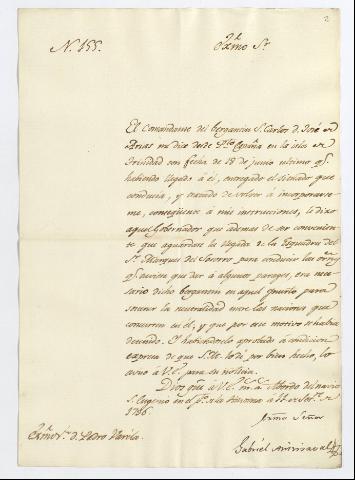 2
N. 155.
Exmo Sr
El Comandante del bergantin S. Carlos d. José de
Arias me dice desde Pto España en la isla de
Trinidad con fecha de 18 de junio ultimo qe
habiendo llegado á él, entregado el situador que
conducia, y tratado de volver á incorporarse
me, consiguiente á mis instrucciones, le dixo
aquel Gobernador que ademas de ser convenien
te que aguardase la llegada de la Esquadra del
Sr. Marques del Socorro para conducir las
qe tuviese que dar á algunos parages, era nece
sario dicho bergantin en aquel puerto para
sostener la neutralidad entre las naciones que
concurren en él; y que por ese motivo se habia
detenido. Y habiendolo aprobado á condicion
expresa de que S.M. lo dé por bien hecho, lo
aviso á V.E. para su noticia.
Dios gue á V.E. ms as Abordo del navio
S. Eugenio en el
1796.
Exmo Señor
Gabriel
Exmo Sr. d. Pedro Varela.